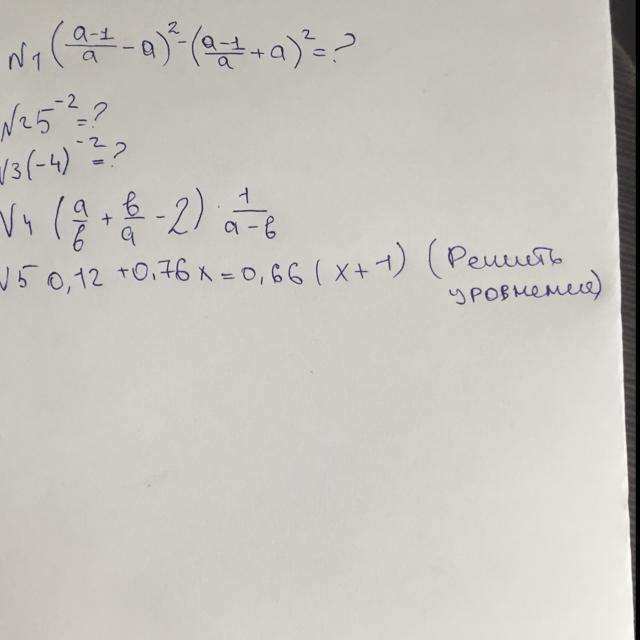 №1 (\frac{a-1}{a} - a)^2 - (\frac{a-1}{a} + a)^2 = ?
№2 5^{-2} = ?
№3 (-4)^{-2} = ?
№4 (\frac{a}{b} + \frac{b}{a} - 2) · \frac{1}{a-b}
№5 0,12 + 0,76x = 0,66 (x + 1) (Решить
уровнения)